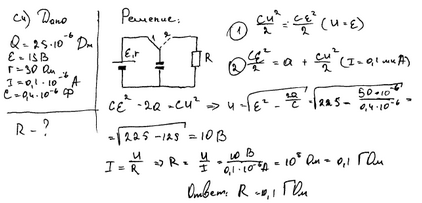 С4) Дано
Q = 25·10⁻⁶ Дж
ε = 15В
r = 30 Ом
I = 0,1·10⁻⁶ А
C = 0,4·10⁻⁶ Ф
R - ?
Решение:
1 2
ε, r
R
① CU²/2 = Cε²/2 (U = ε)
② Cε²/2 = Q + CU²/2 (I = 0,1 мкА)
Cε² - 2Q = CU² ⇒ U = √(ε² - 2Q/C) = √(225 - 50·10⁻⁶/0,4·10⁻⁶) =
= √(225 - 125) = 10В
I = U/R ⇒ R = U/I = 10В/0,1·10⁻⁶А = 10⁸ Ом = 0,1 ГОм
Ответ: R = 0,1 ГОм